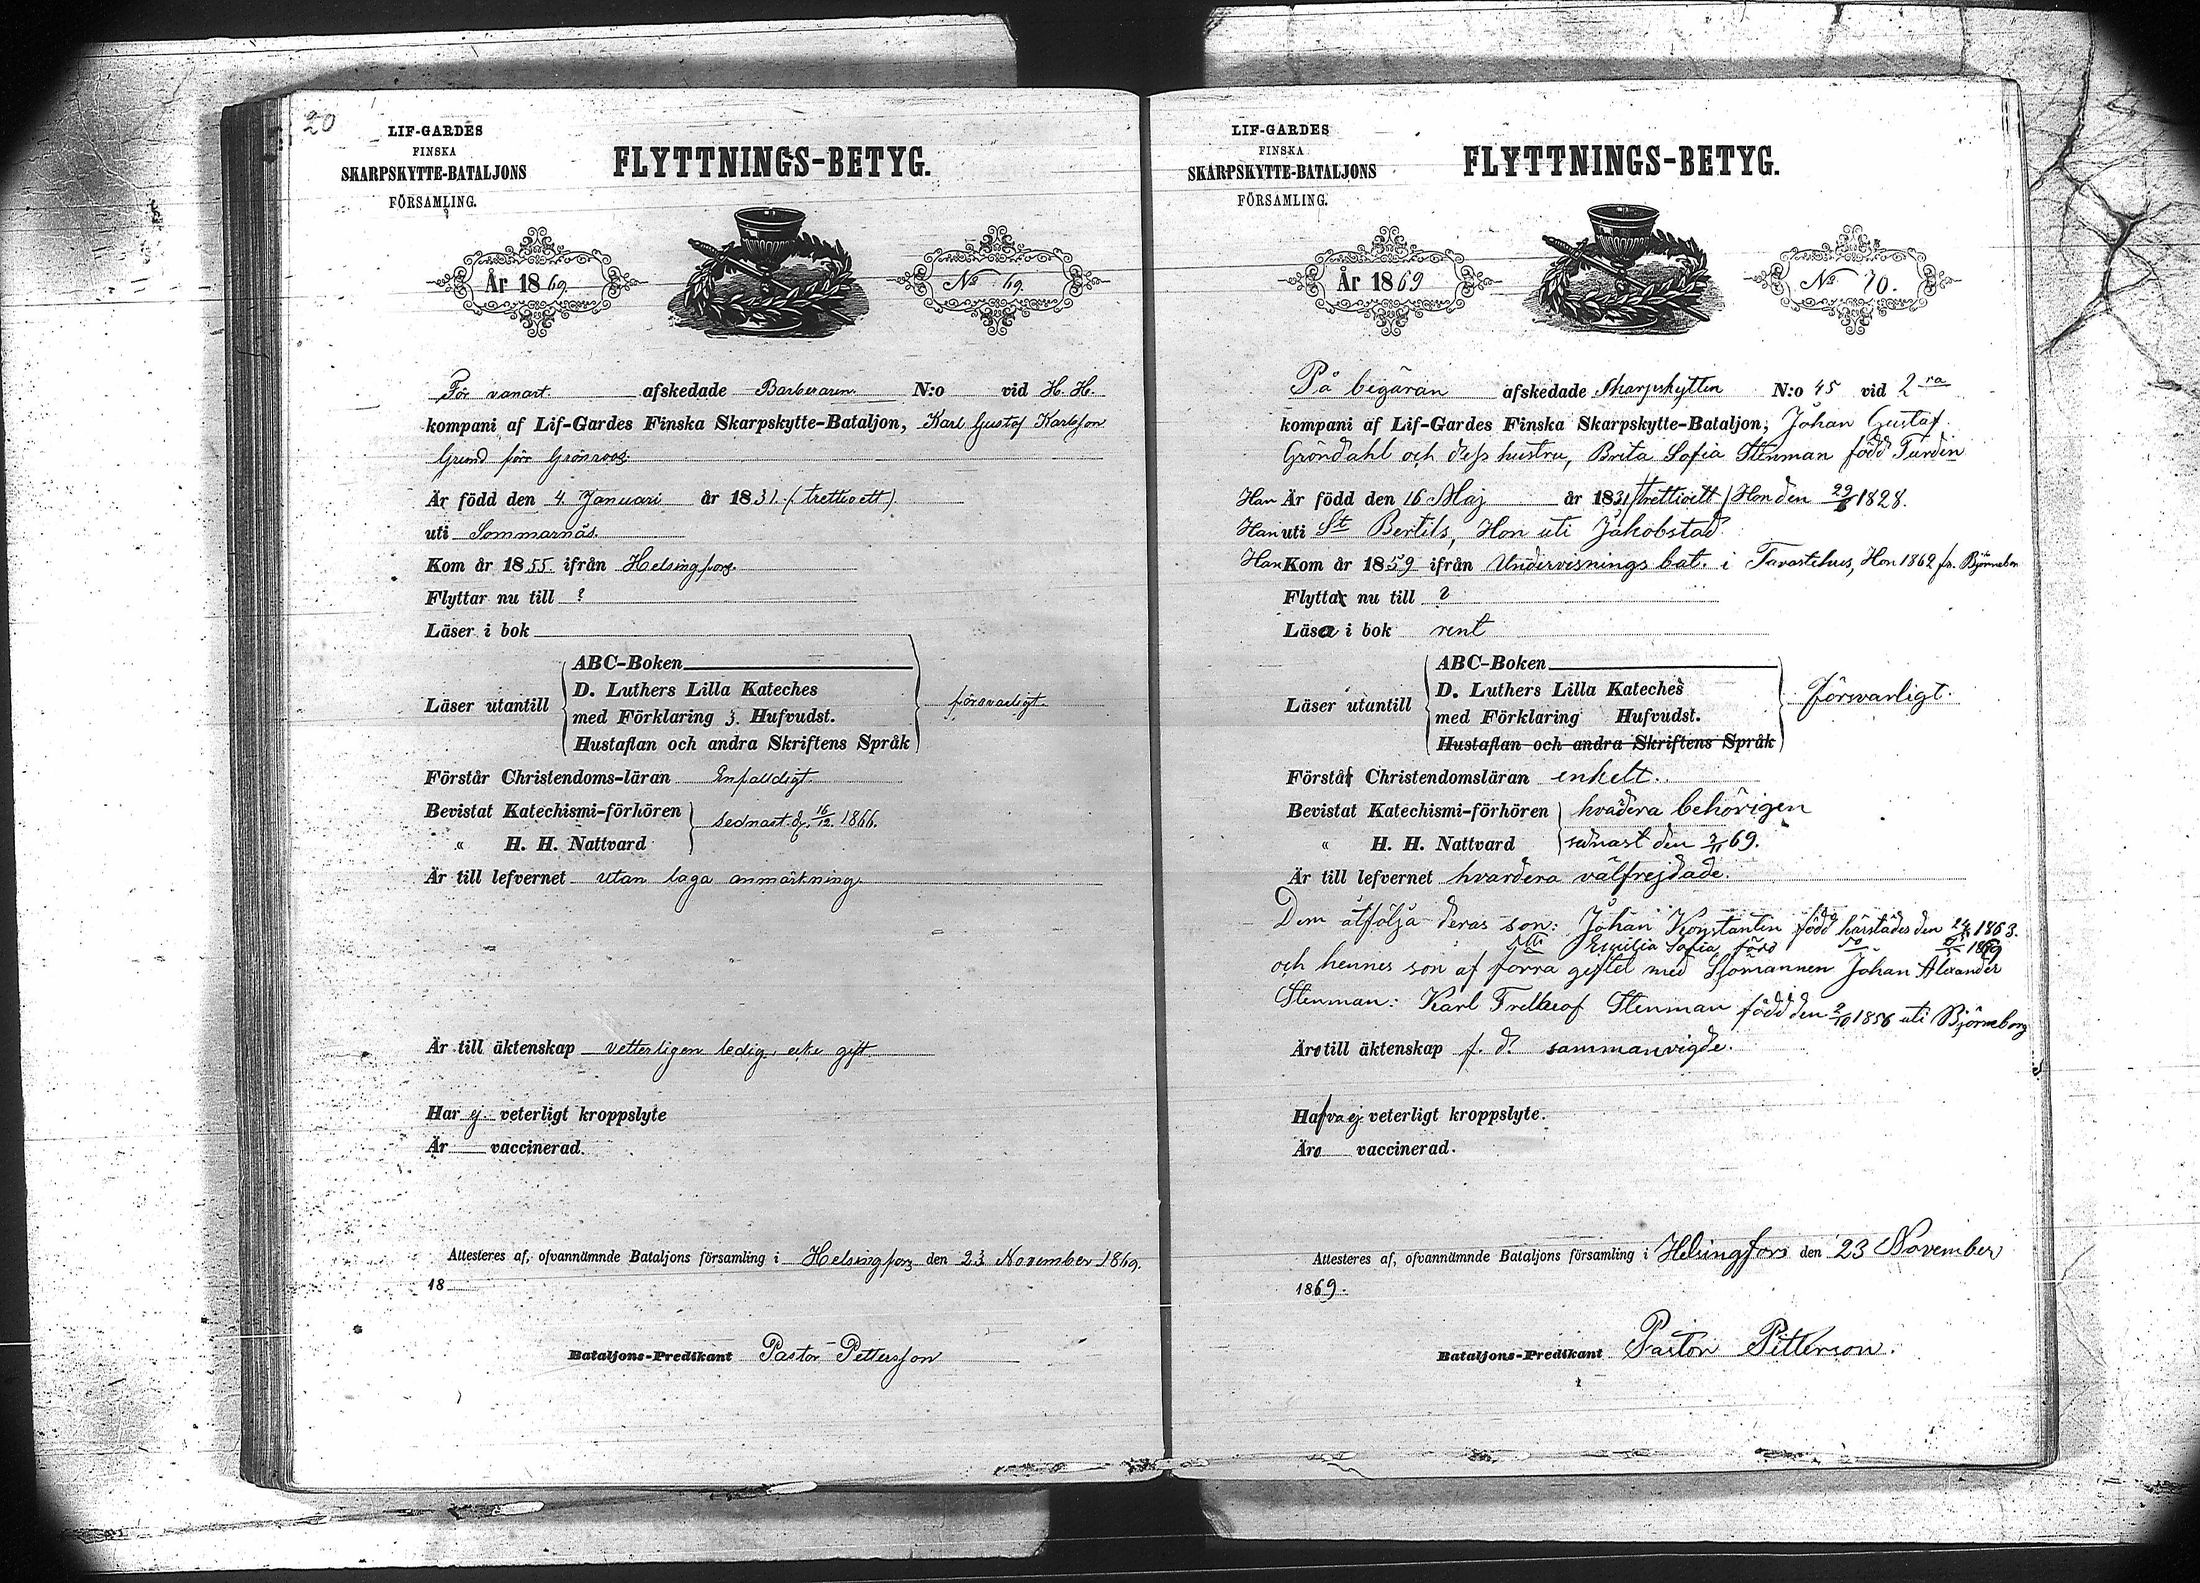 20
LIF-GARDES
FINSKA
SKARPSKYTTE-BATALJONS
FÖRSAMLING.
FLYTTNINGS-BETYG.
År 1869
No 69.
För vanart. afskedade Barberaren N:o vid H. H.
kompani af Lif-Gardes Finska Skarpskytte-Bataljon, Karl Gustaf Karlsson
Grund förr Grönroos.
Är född den 4 Januari år 1831. (trettioett).
uti Sommarnäs.
Kom år 1855 ifrån Helsingfors.
Flyttar nu till ?
Läser i bok
Läser utantill
ABC-Boken
D. Luthers Lilla Kateches
med Förklaring 3. Hufvudst.
Hustaflan och andra Skriftens Språk
försvarligt.
Förstår Christendoms-läran Enfaldigt.
Bevistat Katechismi-förhören
sednast d. 16/12. 1866.
" H. H. Nattvard
Är till lefvernet utan laga anmärkning.
Är till äktenskap vetterligen ledig, icke gift.
Har ej veterligt kroppslyte
Är vaccinerad.
Attesteres af, ofvannämnde Bataljons församling i Helsingfors den 23 November 1869.
18
Bataljons-Predikant Pastor Pettersson
LIF-GARDES
FINSKA
SKARPSKYTTE-BATALJONS
FÖRSAMLING.
FLYTTNINGS-BETYG.
År 1869
No 70.
På begäran afskedade Skarpskytten N:o 45 vid 2ra
kompani af Lif-Gardes Finska Skarpskytte-Bataljon, Johan Gustaf
Gröndahl och dess hustru, Brita Sofia Stenman född Turdin
Han Är född den 16 Maj år 1831 (trettioett) Hon den 1828.
Han uti St Bertils, Hon uti Jakobstad.
Han Kom år 1859 ifrån Undervisnings bat. i Tavastehus, Hon 1862 fr. Björneborg
Flytta nu till ?
Läsa i bok rent
Läser utantill
ABC-Boken
D. Luthers Lilla Kateches
med Förklaring Hufvudst.
Hustaflan och andra Skriftens Språk
försvarligt.
Förstå Christendomsläran enkelt.
Bevistat Katechismi-förhören hvardera behörigen
" H. H. Nattvard sednast den 2/11 69.
Är till lefvernet hvardera välfrejdade.
Dem åtfölja deras son: Johan Konstantin född härstädes den 1863.
Emilia Sofia född 1869
och hennes son af förra giftet med Sjömannen Johan Alexander
Stenman: Karl Fritheof Stenman född den 2/10 1856 uti Björneborg
Äro till äktenskap f. d. sammanvigde.
Hafva ej veterligt kroppslyte.
Äro vaccinerad.
Attesteres af, ofvannämnde Bataljons församling i Helsingfors den 23 November
1869.
Bataljons-Predikant Pastor Petterson.